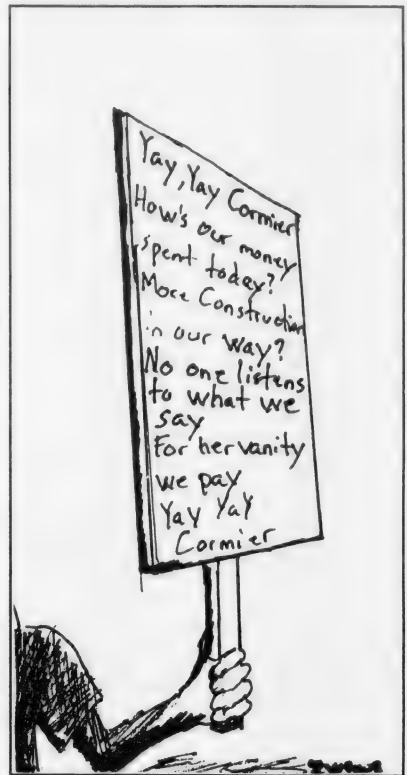 Yay, Yay Cormier
How's our money
spent today?
More Construction
in our way?
No one listens
to what we
say
For her vanity
we pay
Yay YaY
Cormier